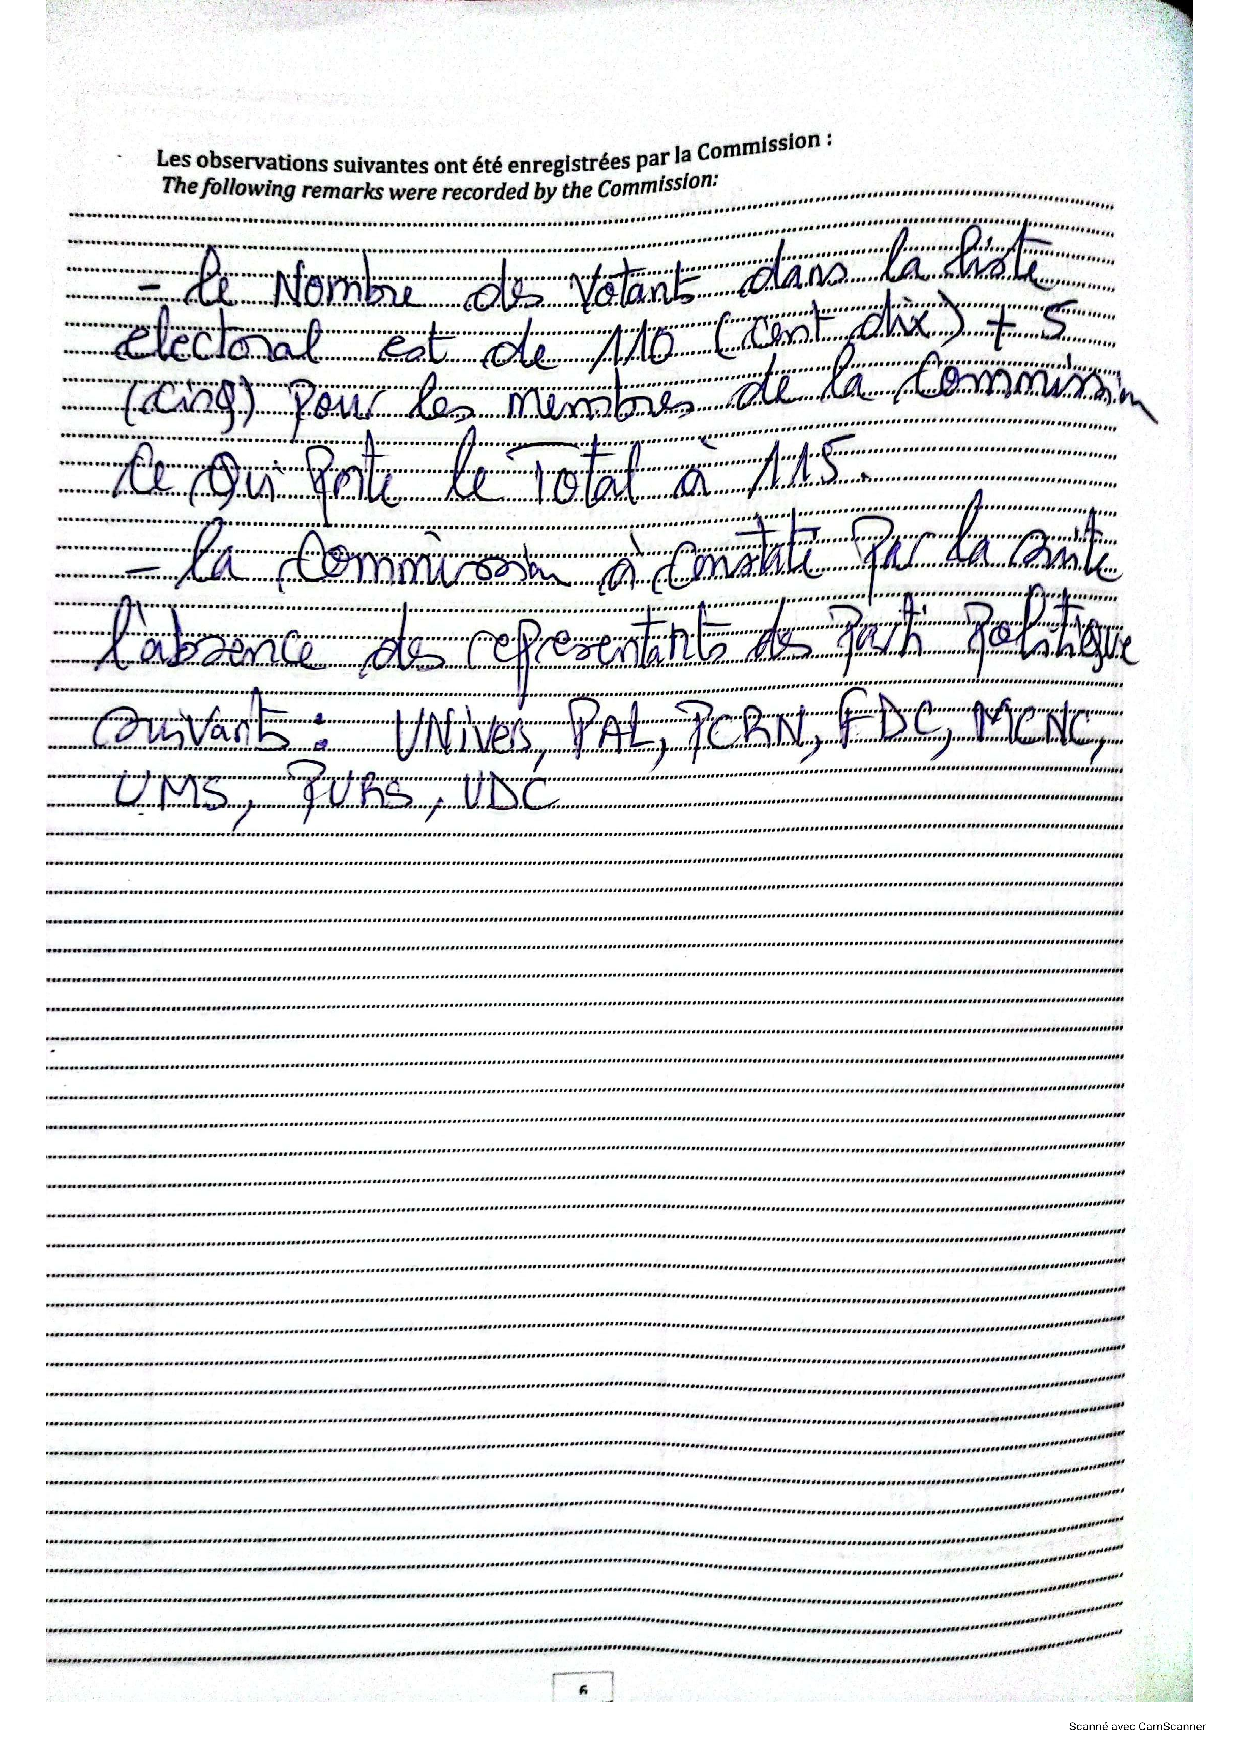 Les observations suivantes ont été enregistrées par la Commission :
The following remarks were recorded by the Commission:
- le Nombre des Votant dans la liste
electoral est de 110 (cent dix) + 5
(cinq) pour les membres de la Commission
Ce Qui porte le Total à 115.
- la Commission à Constaté par la suite
l'absence des representants des Parti Politique
suivants : UNivers, PAL, PCRN, FDC, MCNC,
UMS, PURS, UDC
6
Scanné avec CamScanner